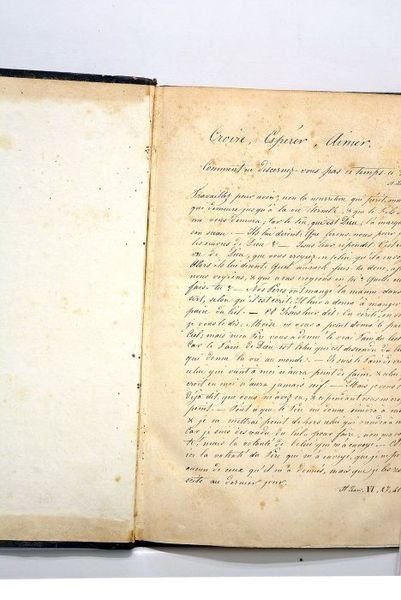 Croire, Espérer, Aimer.
Comment ne discernez-vous pas ce temps-ci
Travaillez pour avoir, non la nourriture qui périt, mais
qui demeure jusqu'à la vie éternelle, & que le Fils
vous donnera; Car le Père, qui est Dieu, l'a marqué
son sceau. — Ils lui dirent: Que ferons-nous pour
les œuvres de Dieu & — Jésus leur répondit: C'est
de Dieu, que vous croyiez en celui qu'il a envoyé
Alors ils lui dirent: Quel miracle fais-tu donc, afin
nous voyions, & que nous croyions en toi? Quelle
fais-tu & — Nos Pères ont mangé la manne dans
sert, selon qu'il est écrit: Il leur a donné à manger
pain du Ciel. — Et Jésus leur dit: En vérité, en
je vous le dis: Moïse ne vous a point donné le pain
Ciel; mais mon Père vous donne le vrai Pain du Ciel
Car le Pain de Dieu est celui qui est descendu du
qui donne la vie au monde. — Je suis le Pain de
celui qui vient à moi n'aura point de faim, & celui
croit en moi n'aura jamais soif. — Mais je vous
déjà dit, que vous m'avez vu, & cependant vous ne
point. — Tout ce que le Père me donne viendra à
& je ne mettrai point dehors celui qui viendra à
Car je suis descendu du Ciel pour faire, non ma
té, mais la volonté de Celui qui m'a envoyé. —
ici la volonté du Père qui m'a envoyé, que je ne
aucun de ceux qu'il m'a donnés, mais que je les
cite au dernier jour.
St Jean. VI, 27,